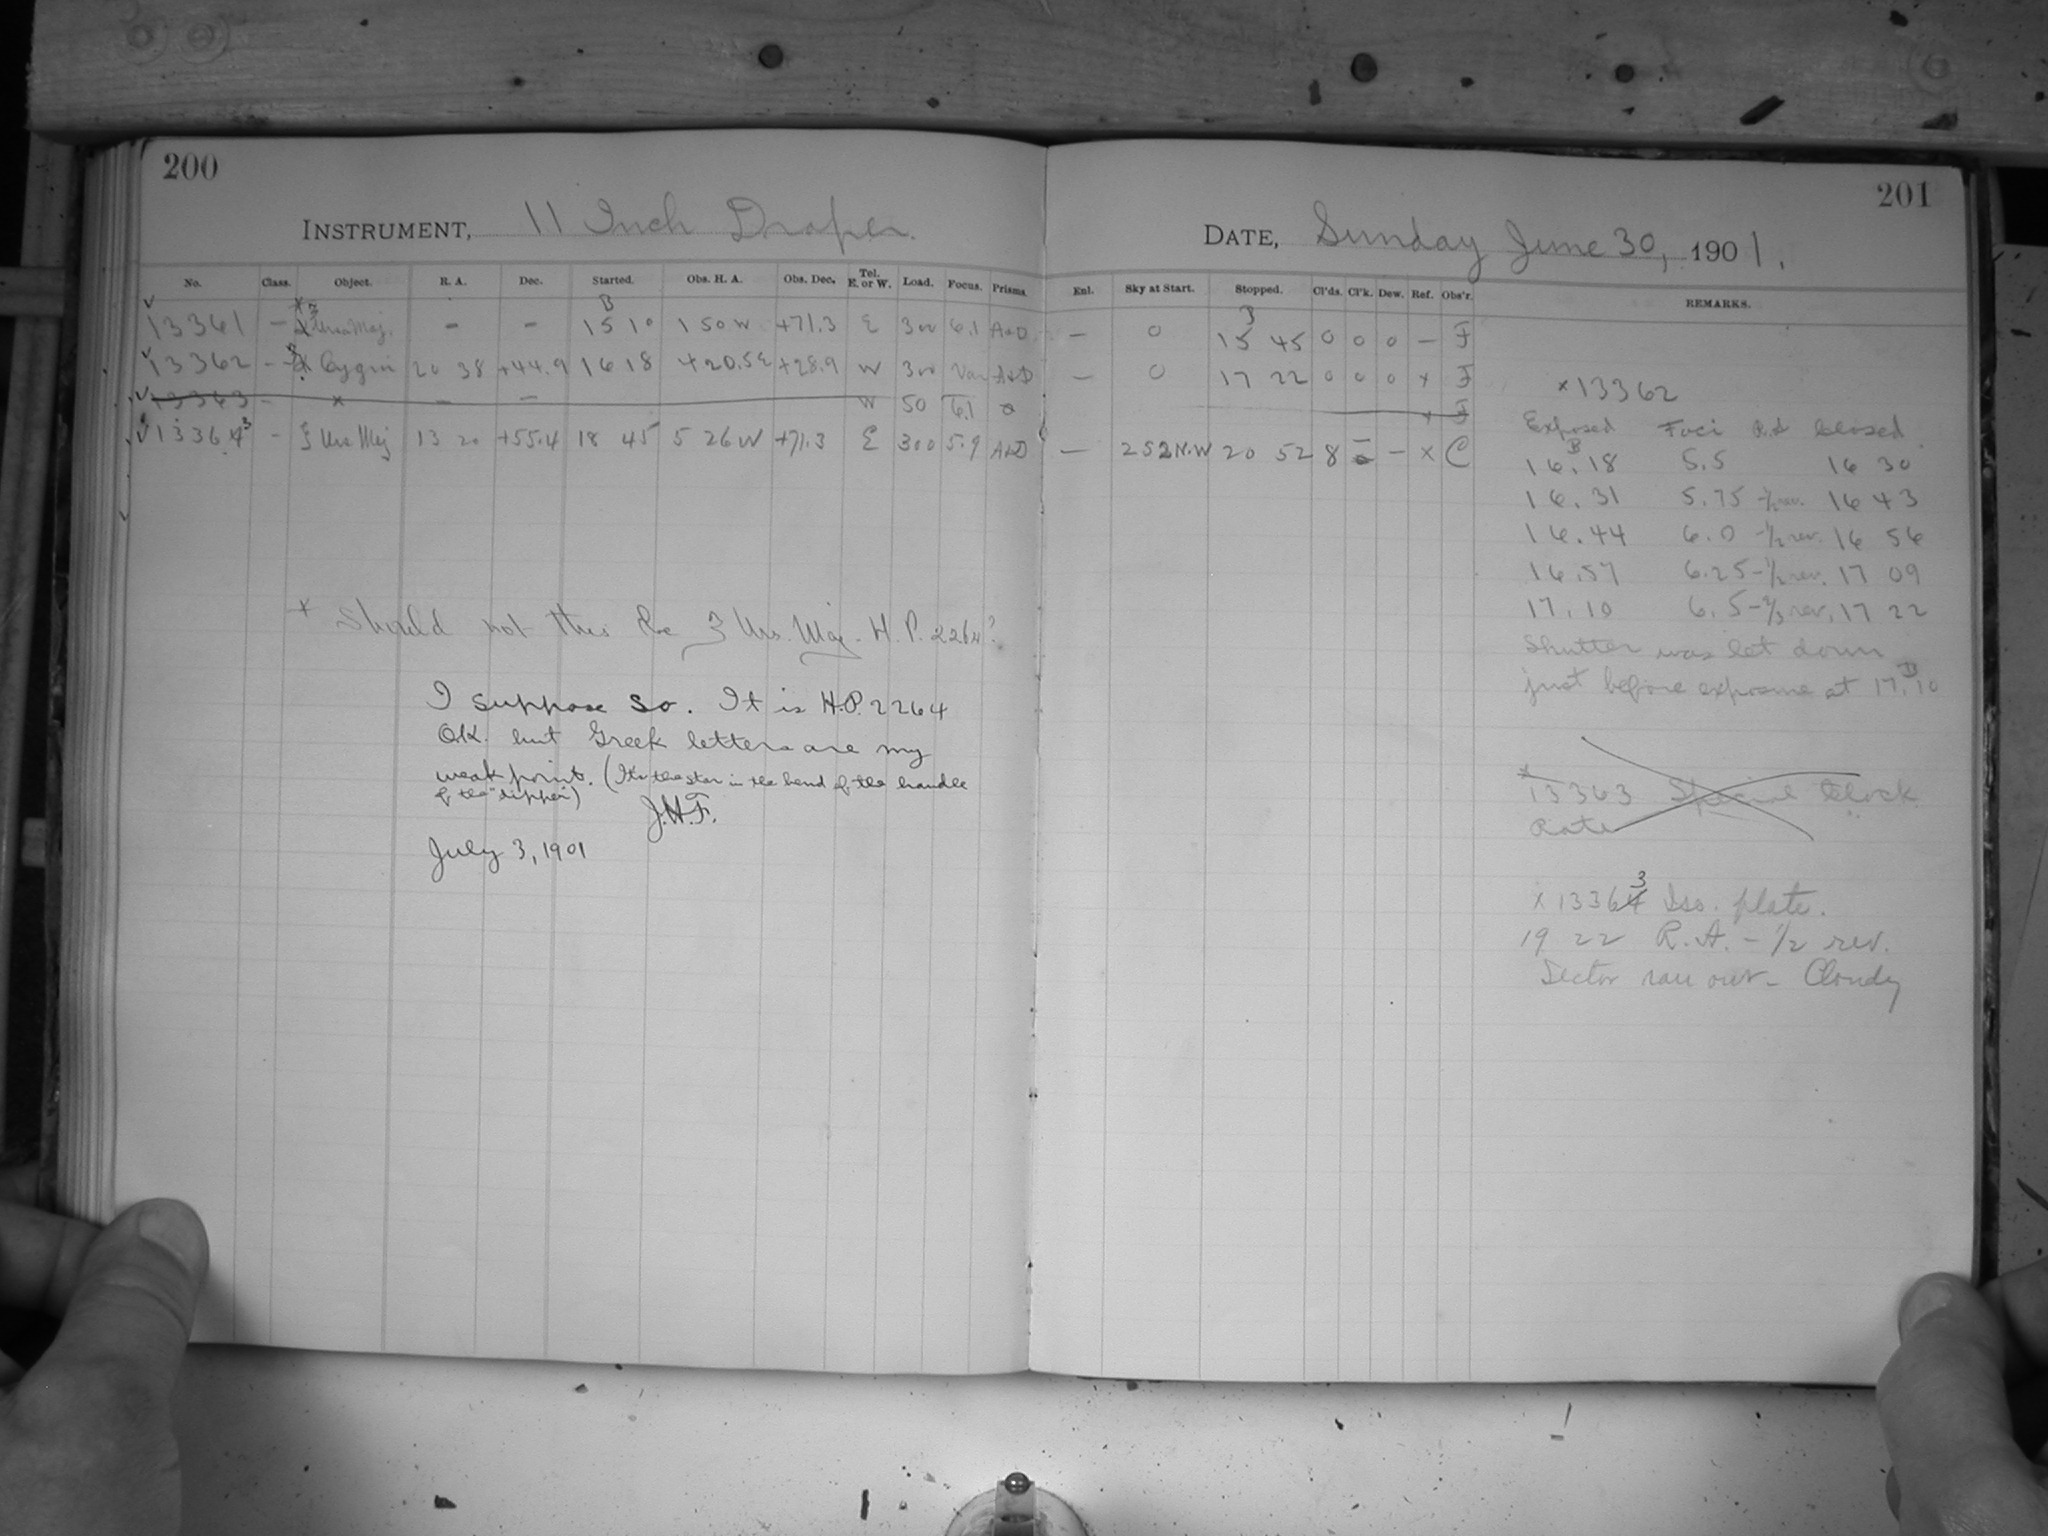 200
INSTRUMENT, 11 Inch Draper.
No. Class. Object. R. A. Dec. Started. Obs. H. A. Obs. Dec. Tel. E. or W. Load. Focus. Prisms
13361 - Ursa Maj. - - 15 10 1 50 W +71.3 E 300 6.1 A+D
13362 - Cygni 20 38 +44.9 16 18 4 20.5 E +28.9 W 300 Var A+D
13363 - x - - W 50 6.1 0
13364 3 - ζ Urs Maj 13 20 +55.4 18 45 5 26 W +71.3 E 300 5.9 A+D
* Should not this be ζ Urs. Maj. H. P. 2264?
I suppose so. It is H.P. 2264
O.K. but Greek letters are my
weak point. (It's the star in the bend of the handle
of the "dipper")
J.H.F.
July 3, 1901
201
DATE, Sunday June 30, 1901.
Enl. Sky at Start. Stopped. Cl'ds. Cl'k. Dew. Ref. Obs'r. REMARKS.
- 0 15 45 0 0 0 - F
- 0 17 22 0 0 0 x F
x F
- 252 N.W 20 52 8 - x C
x 13362
Exposed Foci R.A. Closed
16.18 5.5 16 30
16.31 5.75 -½ rev. 16 43
16.44 6.0 -½ rev. 16 56
16.57 6.25 -½ rev. 17 09
17.10 6.5 -⅔ rev. 17 22
Shutter was let down
just before exposure at 17.10
* 13363 Special Clock
Rate
x 13364 3 Iso. plate.
19 22 R.A. - ½ rev.
Sector ran out - Cloudy